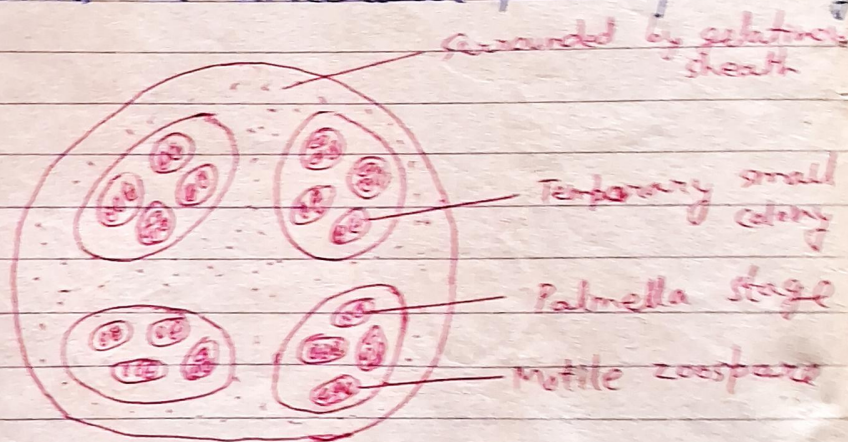 Surrounded by gelatinous
sheath
Temporary small
colony
Palmella stage
Motile zoospore